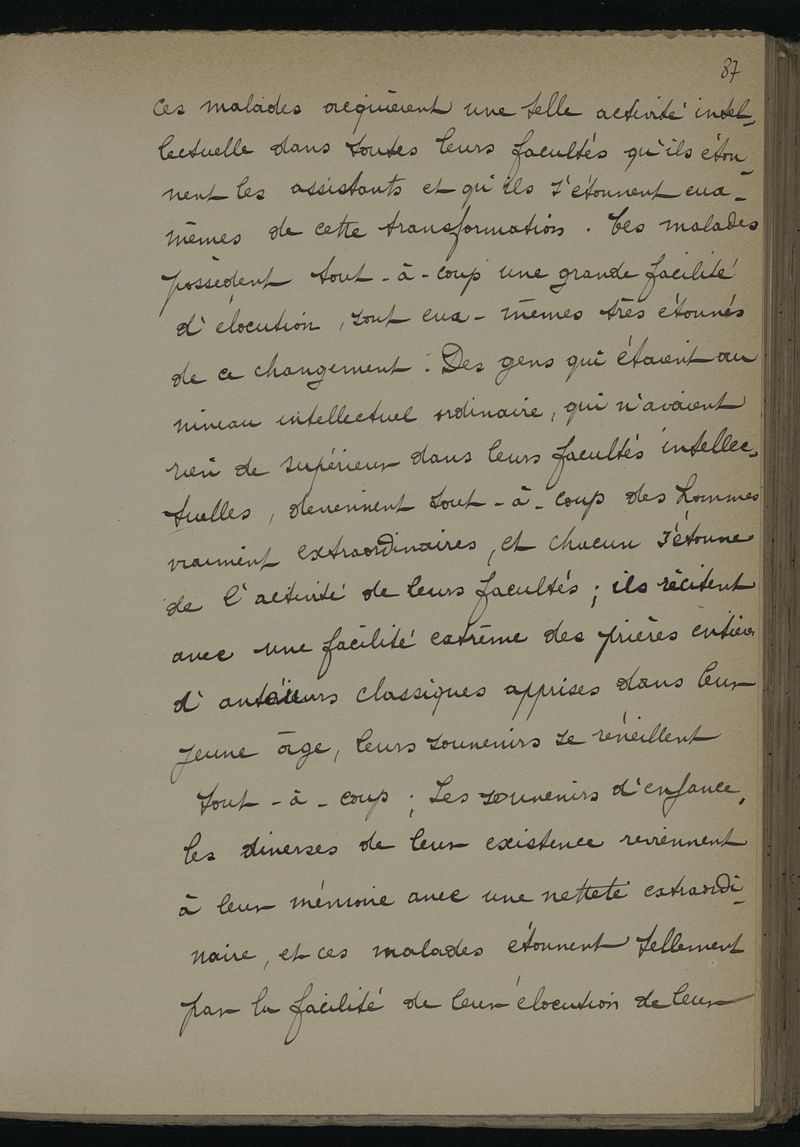 87
Ces malades acquièrent une telle activité intel-
lectuelle dans toutes leurs facultés qu'ils éton-
nent les assistants et qu'ils s'étonnent eux-
mêmes de cette transformation. Ces malades
possèdent tout-à-coup une grande facilité
d'élocution, sont eux-mêmes très étonnés
de ce changement. Des gens qui étaient au
niveau intellectuel ordinaire, qui n'avaient
rien de supérieur dans leurs facultés intellec-
tuelles, deviennent tout-à-coup des hommes
vraiment extraordinaires, et chacun s'étonne
de l'activité de leurs facultés; ils récitent
avec une facilité extrême des prières entières
d'auteurs classiques apprises dans leur
jeune âge, leurs souvenirs se réveillent
tout-à-coup; Les souvenirs d'enfance,
les diverses de leur existence reviennent
à leur mémoire avec une netteté extraordi-
naire, et ces malades étonnent tellement
par la facilité de leur élocution de leur